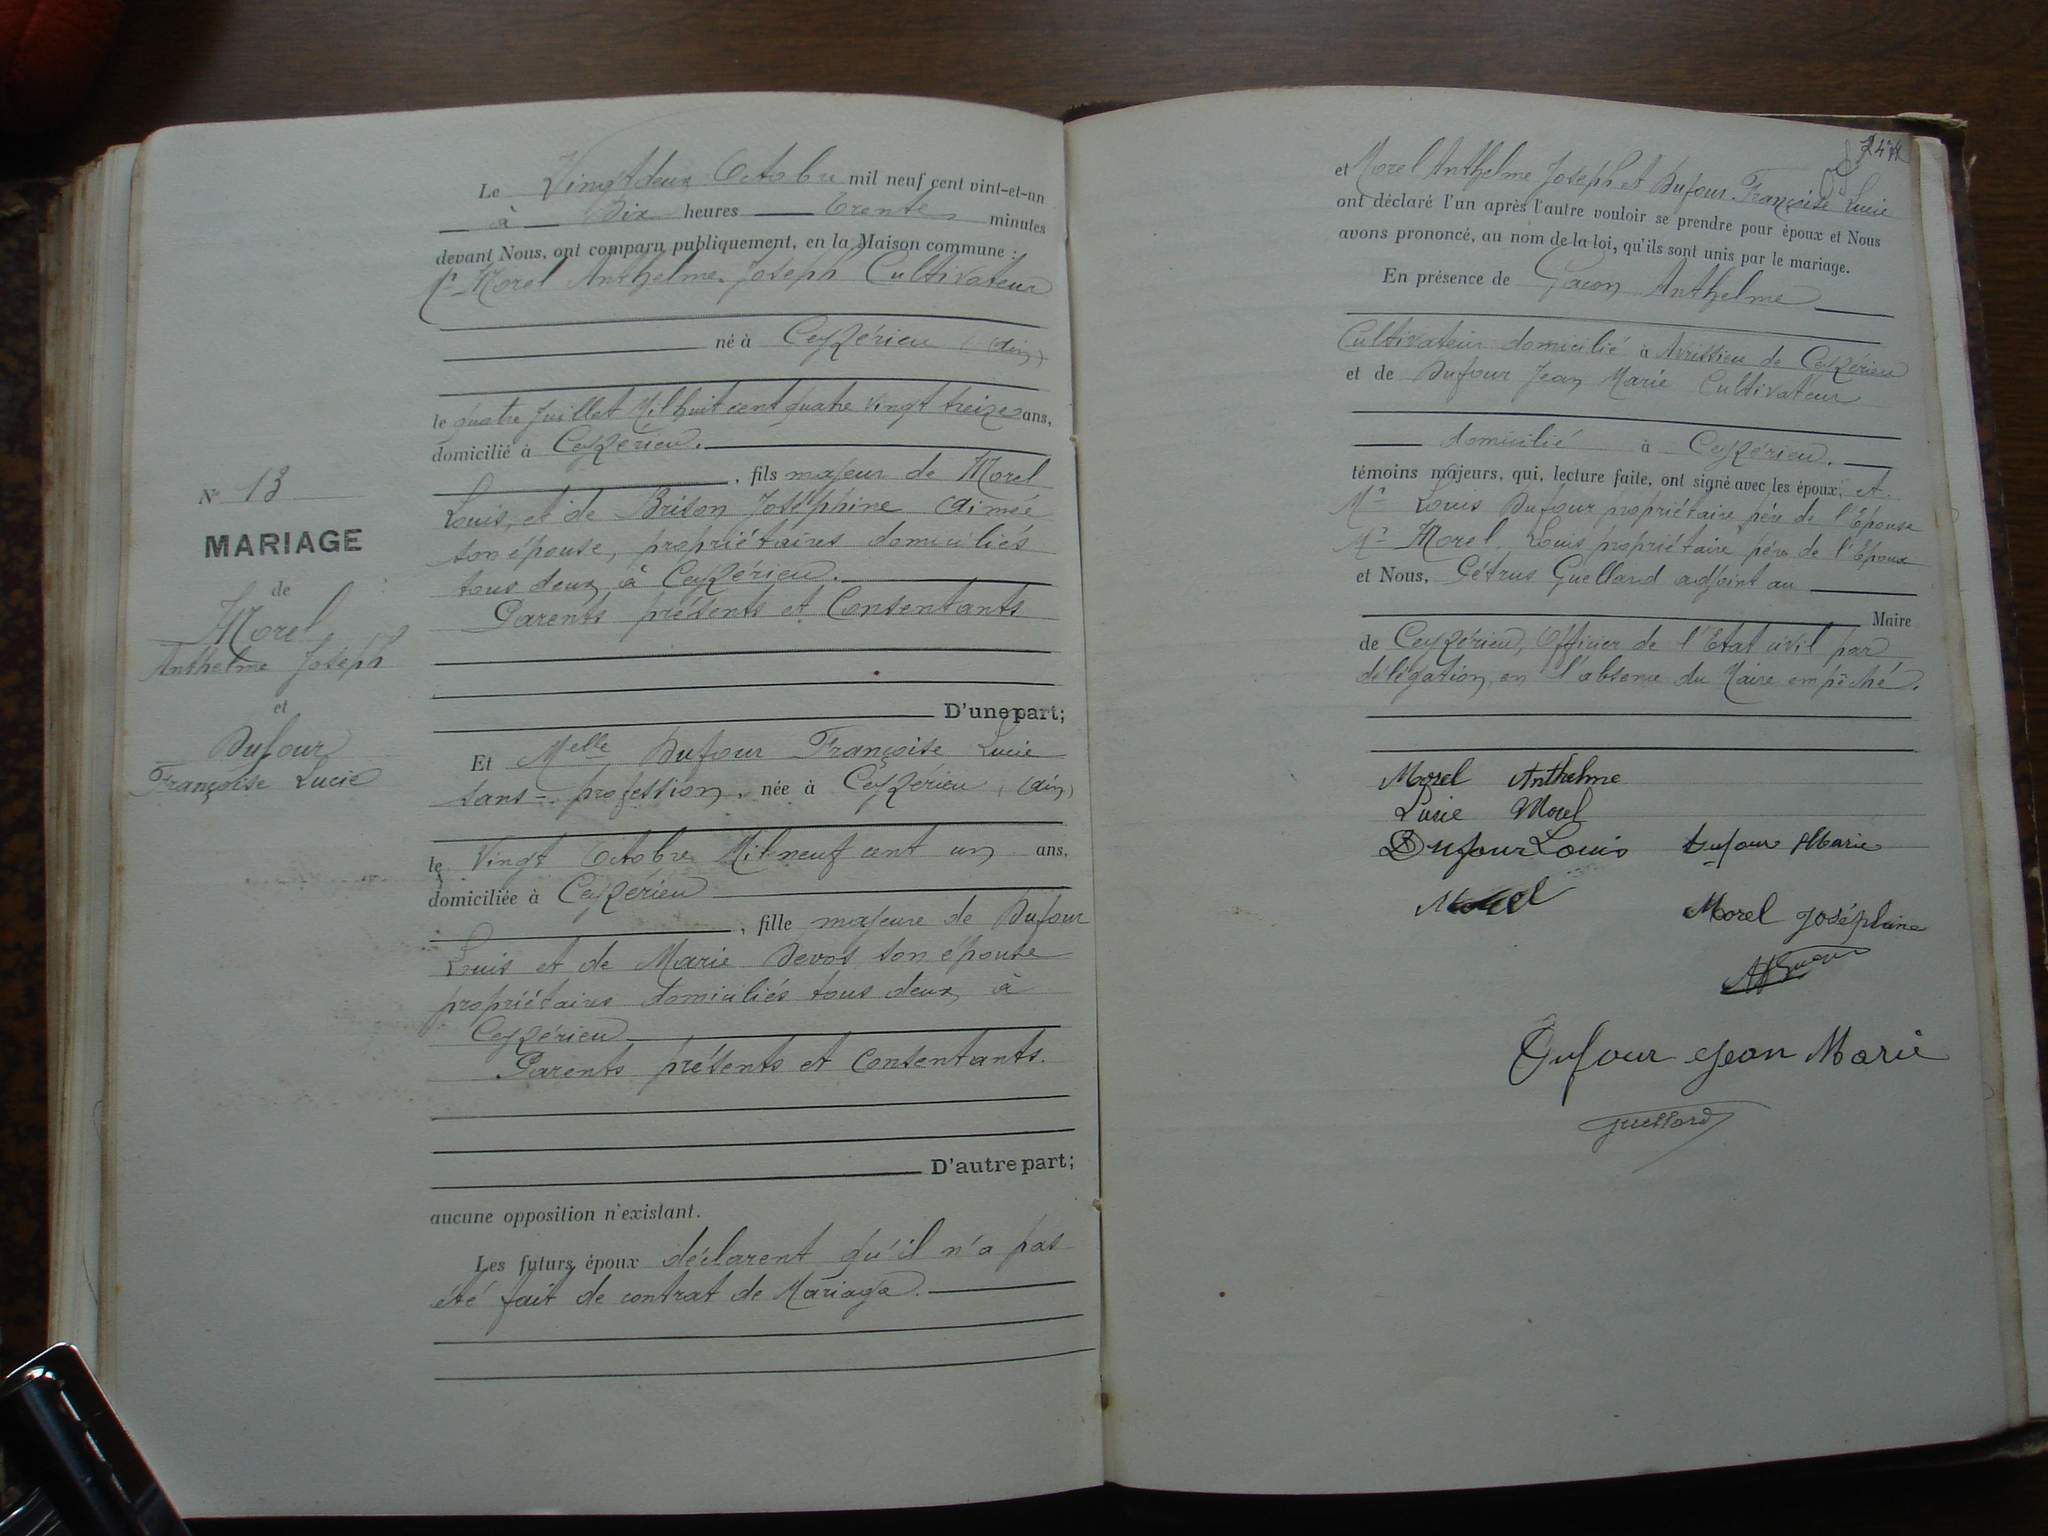 Le Vingt deux Octobre mil neuf cent vint-et-un
à Dix heures Trente minutes
devant Nous, ont comparu publiquement, en la Maison commune :
Mr Morel Anthelme Joseph Cultivateur
né à Ceyzérieu (Ain)
le quatre Juillet Mil huit cent quatre vingt treize ans,
domicilié à Ceyzérieu.
, fils majeur de Morel
Louis, et de Brison Joséphine Aimée
son épouse, propriétaires domiciliés
tous deux à Ceyzérieu.
Parents présents et Consentants
D'une part;
Et Melle Dufour Françoise Lucie
sans profession, née à Ceyzérieu (Ain)
le Vingt Octobre Mil neuf cent un ans,
domiciliée à Ceyzérieu
, fille majeure de Dufour
Louis et de Marie Devos son épouse
propriétaires domiciliés tous deux à
Ceyzérieu
Parents présents et Consentants.
D'autre part;
aucune opposition n'existant.
Les futurs époux déclarent qu'il n'a pas
été fait de contrat de Mariage.
N° 13
MARIAGE
de
Morel
Anthelme Joseph
et
Dufour
Françoise Lucie
et Morel Anthelme Joseph et Dufour Françoise Lucie
ont déclaré l'un après l'autre vouloir se prendre pour époux et Nous
avons prononcé, au nom de la loi, qu'ils sont unis par le mariage.
En présence de Gacon Anthelme
Cultivateur domicilié à Avrissieu de Ceyzérieu
et de Dufour Jean Marie Cultivateur
domicilié à Ceyzérieu.
témoins majeurs, qui, lecture faite, ont signé avec les époux, et
Mr Louis Dufour propriétaire père de l'Epouse
Mr Morel Louis propriétaire père de l'Epoux
et Nous, Pétrus Guelland adjoint au
Maire
de Ceyzérieu, Officier de l'Etat civil par
délégation, en l'absence du Maire empêché.
Morel Anthelme
Lucie Morel
Dufour Louis Dufour Marie
Morel Morel Joséphine
Dufour Jean Marie
Guelland